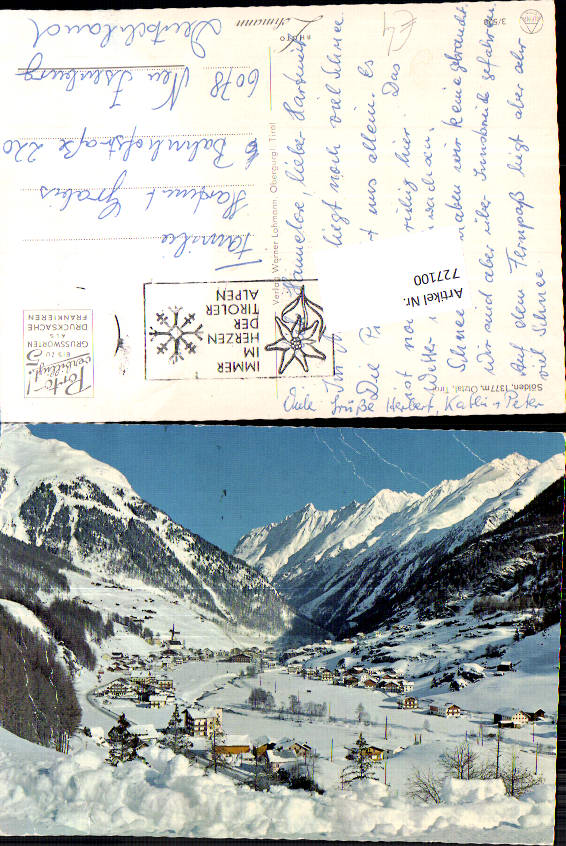 3/578
PHOTO Lohmann
Hannelore, lieber Hartmut
liegt noch viel Schnee
uns allein. Es
ist
ruhig hier. Das
Schnee haben wir keine gebraucht.
Wir sind aber über Innsbruck gefahren.
Auf dem Fernpaß liegt aber sehr
viel Schnee
Eure
Grüße Herbert, Kathi + Peter
Verlag Werner Lohmann, Obergurgl Tirol
Familie
Hartmut Grabis
Bahnhofstraße 220
6078 Neu Isenburg
Deutschland
IMMER
IM
HERZEN
DER
TIROLER
ALPEN
Porto-
verbilligt!
BIS ZU 5
GRUSSWORTEN
ALS
DRUCKSACHE
FRANKIEREN
Sölden, 1377m, Ötztal, Tirol
Artikel Nr.
727100